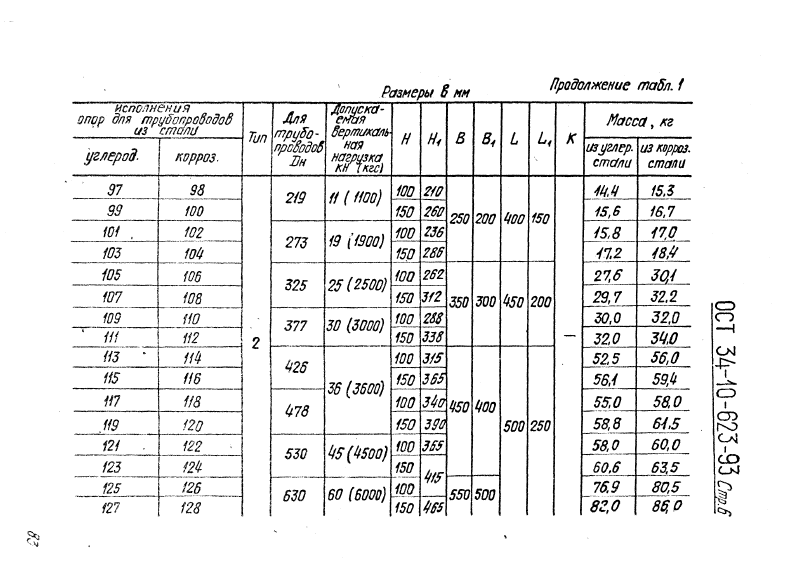 Продолжение табл. 1
Размеры в мм
исполнения опор для трубопроводов из стали | Тип | Для трубопроводов Dн | Допускаемая вертикальная нагрузка кН (кгс) | H | H1 | B | B1 | L | L1 | K | Масса, кг
углерод. | корроз. | из углер. стали | из корроз. стали
97 | 98 | 2 | 219 | 11 (1100) | 100 | 210 | 250 | 200 | 400 | 150 | — | 14,4 | 15,3
99 | 100 | 150 | 260 | 15,6 | 16,7
101 | 102 | 273 | 19 (1900) | 100 | 236 | 15,8 | 17,0
103 | 104 | 150 | 286 | 17,2 | 18,4
105 | 106 | 325 | 25 (2500) | 100 | 262 | 350 | 300 | 450 | 200 | 27,6 | 30,1
107 | 108 | 150 | 312 | 29,7 | 32,2
109 | 110 | 377 | 30 (3000) | 100 | 288 | 30,0 | 32,0
111 | 112 | 150 | 338 | 32,0 | 34,0
113 | 114 | 426 | 36 (3600) | 100 | 315 | 450 | 400 | 500 | 250 | 52,5 | 56,0
115 | 116 | 150 | 365 | 56,1 | 59,4
117 | 118 | 478 | 100 | 340 | 55,0 | 58,0
119 | 120 | 150 | 390 | 58,8 | 61,5
121 | 122 | 530 | 45 (4500) | 100 | 365 | 58,0 | 60,0
123 | 124 | 150 | 415 | 60,6 | 63,5
125 | 126 | 630 | 60 (6000) | 100 | 550 | 500 | 76,9 | 80,5
127 | 128 | 150 | 465 | 82,0 | 86,0
ОСТ 34-10-623-93 Стр.6
83